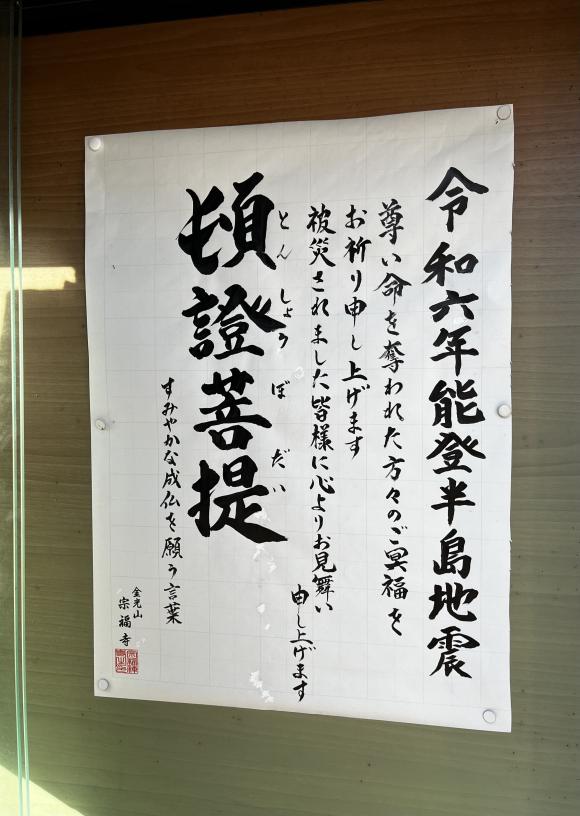 令和六年能登半島地震
尊い命を奪われた方々のご冥福を
お祈り申し上げます
被災されました皆様に心よりお見舞い
申し上げます
頓證菩提
とんしょうぼだい
すみやかな成仏を願う言葉
金光山
宗福寺